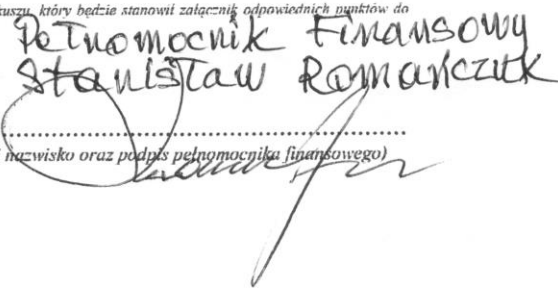 kuszu, który będzie stanowił załącznik odpowiednich punktów do
Pełnomocnik Finansowy
Stanisław Romańczuk
nazwisko oraz podpis pełnomocnika finansowego)